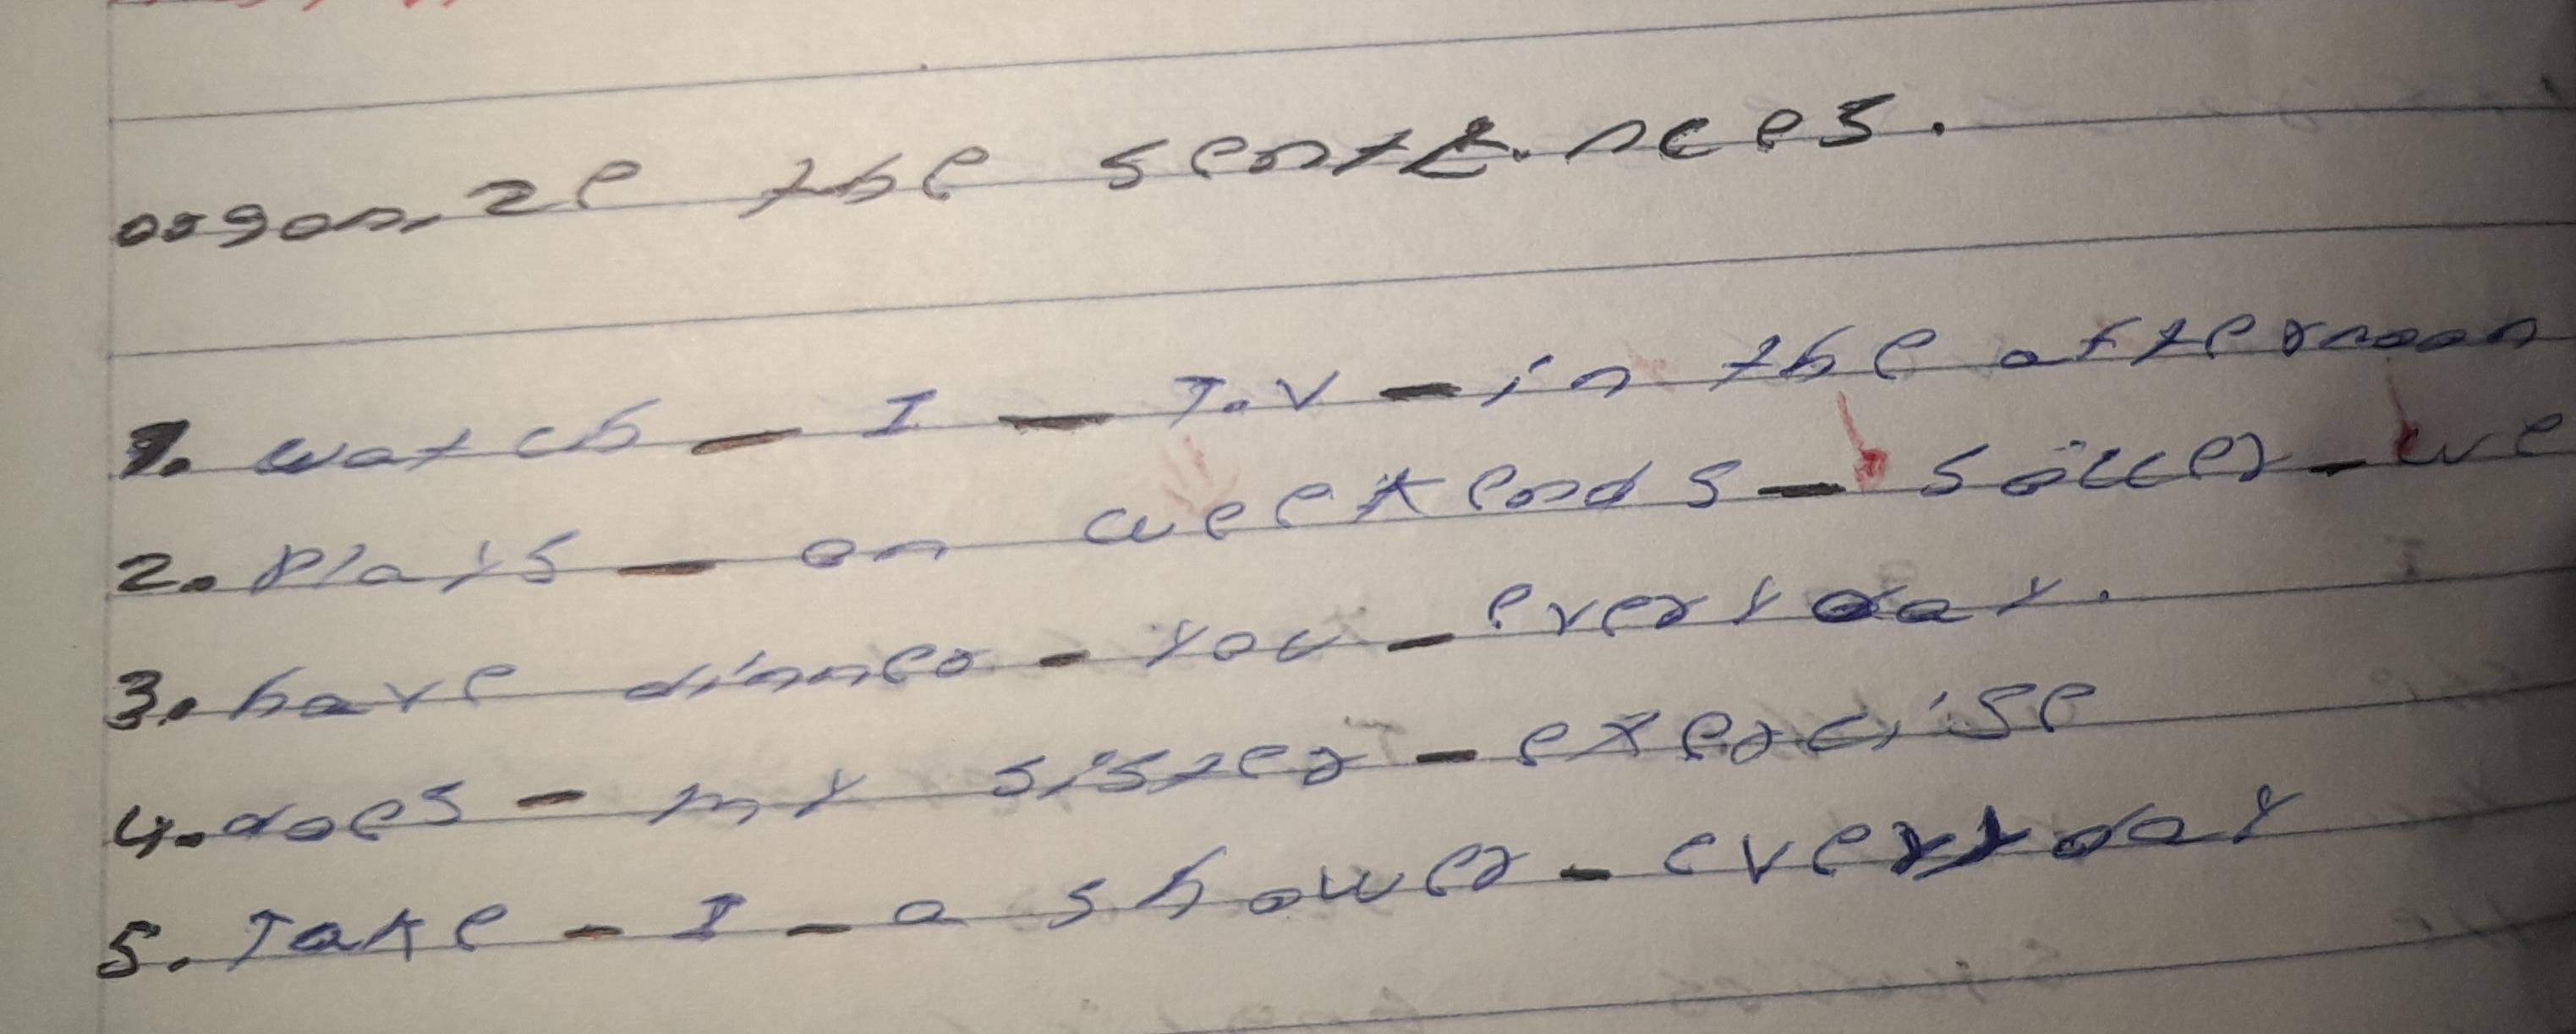 organize the sentences.
1. watch - I - T.V - in the afternoon
2. plays - on weekends - soccer - we
3. have dinner - you - every day.
4. does - my sister - exercise
5. Take - I - a shower - every day